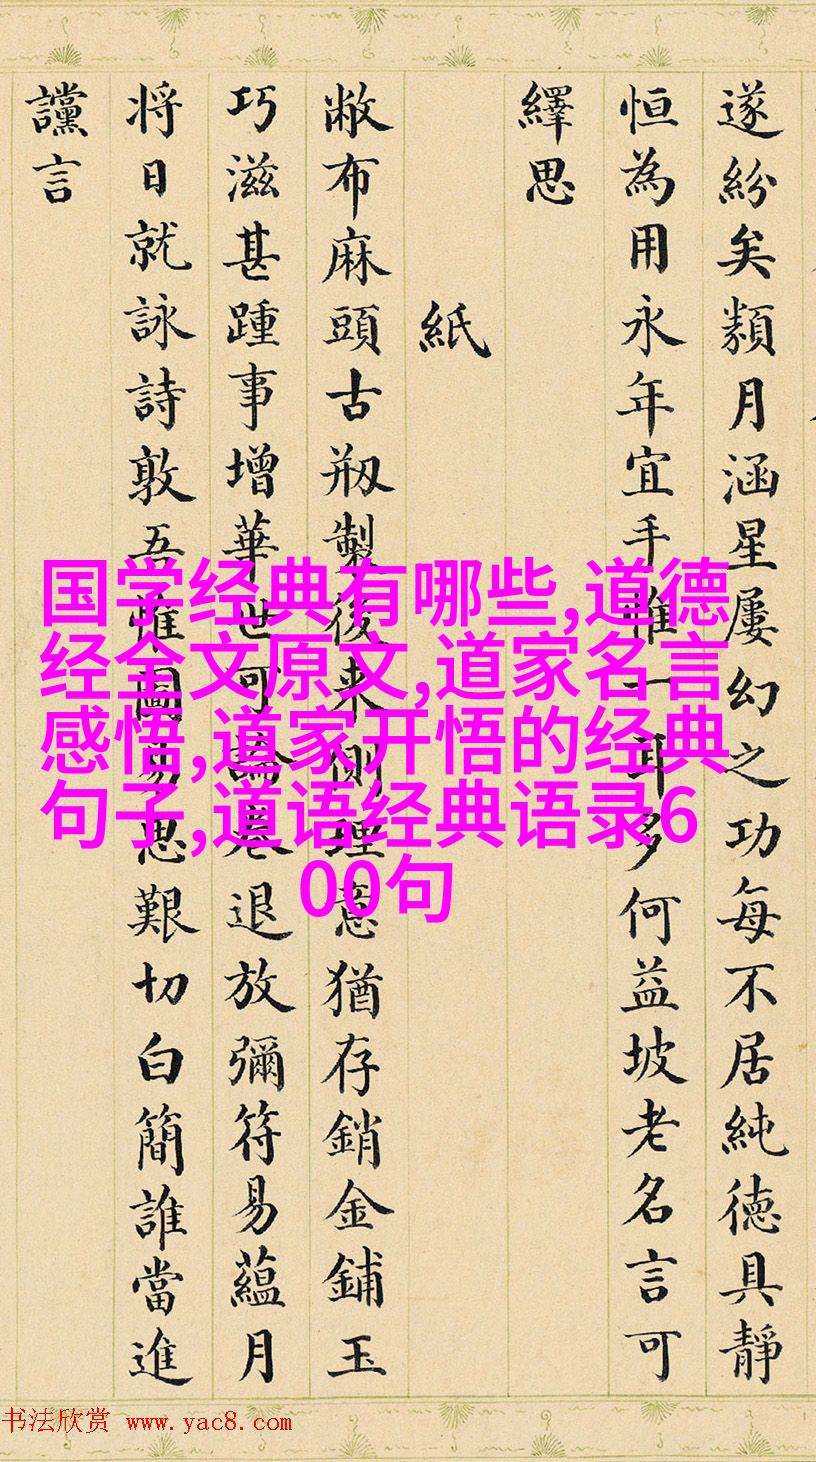 遂紛矣類月涵星屢幻之功每不居純德具靜
恒為用永年宜手惟一耳多何益坡老名言可
繹思
紙
敝布麻頭古剏製後来側理意猶存銷金鋪玉
巧滋甚踵事增華世可論卷退放彌符易蘊月
将日就詠詩敦吾惟圖易思艱切白簡誰當進
讜言
国学经典有哪些,道德
经全文原文,道家名言
感悟,道家开悟的经典
句子,道语经典语录6
00句
书法欣赏 www.yac8.com